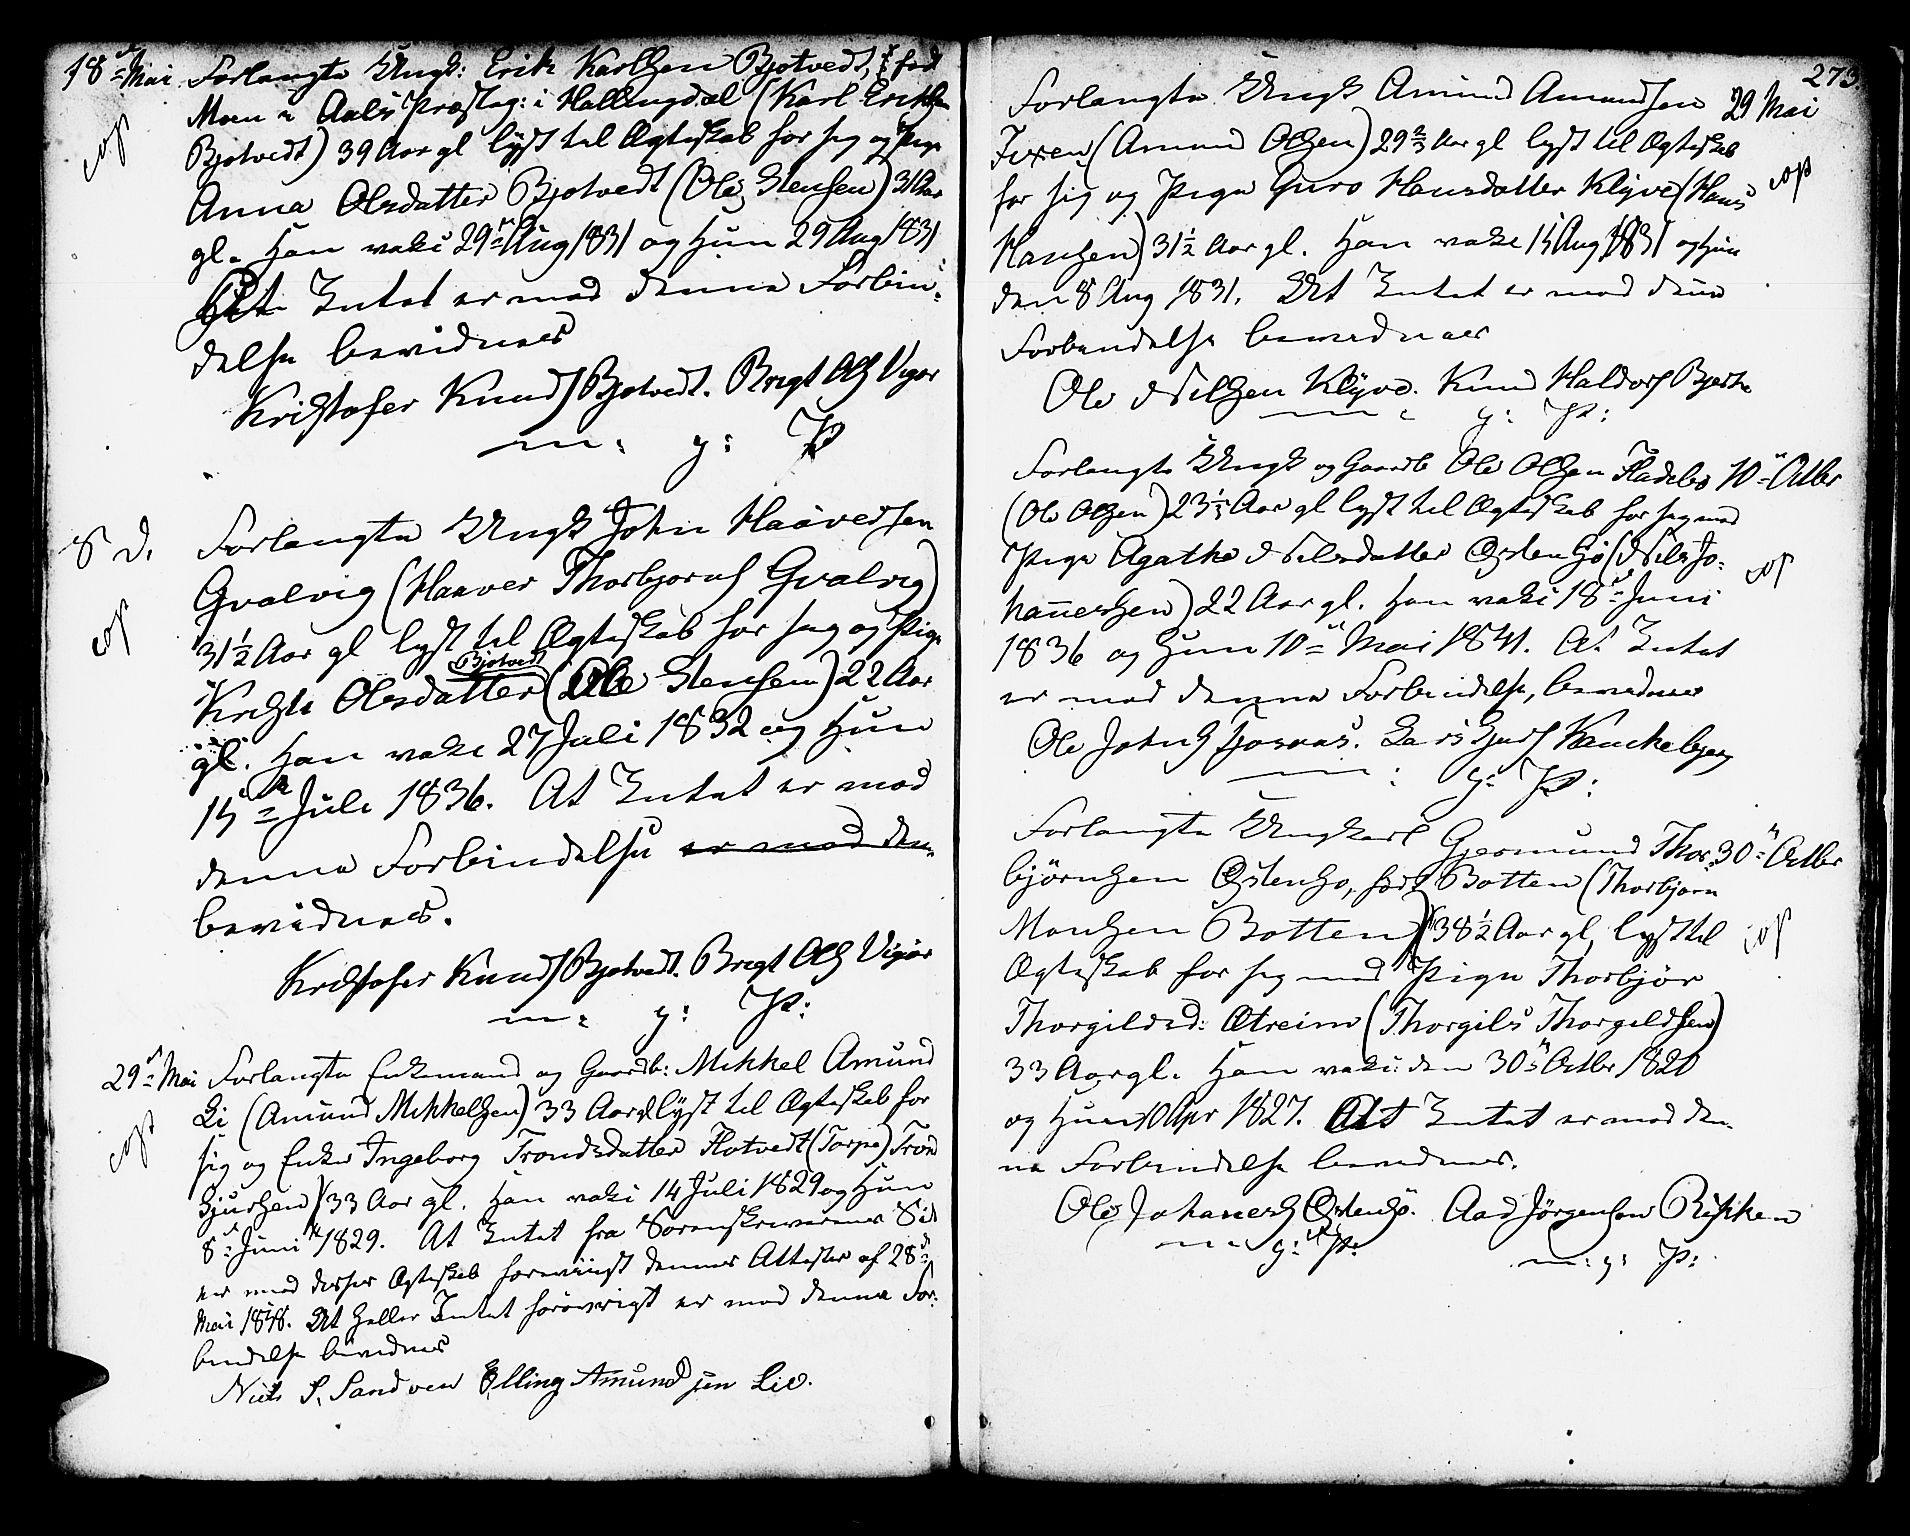 18de Mai Forlangte Ungk: Erik Karlsen Bjotvedt, fød
Moen i Aals Præsteg: i Hallingdal (Karl Eriksen
cop
Bjotvedt) 39 Aar gl lyst til Ægteskab for sig og Pige
Anna Olsdatter Bjotvedt (Ole Stensen) 31 Aar
gl. Han vaks: 29de Aug 1831 og Hun 29 Aug 1831
At Intet er mod denne Forbin-
delse bevidnes
Kristofer Knuds Bjotvedt. Bregt Ols Vigør
m: g: P
S. D. Forlangte Ungk John Haaversen
Gvalvig (Haaver Thorbjorns Gvalvig)
cop
31½ Aar gl lyst til Ægteskab for sig og Pige
Bjotvedt
Kristi Olsdatter (Ole Stensen) 22 Aar
gl. Han vaks: 27 Juli 1832 og Hun
15de Juli 1836. At Intet er mod
denne Forbindelse er mod den-
bevidnes.
Kristofer Knuds Bjotvedt. Bregt Ols Vigør
m: g: P:
29de Mai Forlangte Enkemand og Gaardb: Mikkel Amund
Li (Amund Mikkelsen) 33 Aar gl lyst til Ægteskab for
cop
sig og Enke Ingeborg Trondsdatter Flotvedt (Torpe) Trond
Gjursen) 33 Aar gl. Han vaks: 14 Juli 1829 og Hun
8de Juni 1829. At Intet fra Sorenskriverens Side
er mod disses Ægteskab foreviist dennes Attester af 28de
Mai 1848. At heller Intet forøvrigt er mod denne For-
bindelse bevidnes
Niels S. Sandven Elling Amundsen Lie.
273.
Forlangte Ungk Amund Amundsen 29 Mai
(Amund Olsen) 29⅔ Aar gl lyst til Ægteskab
for sig og Pige Guro Hansdatter Klÿve (Hans cop
Hansen) 31½ Aar gl. Han vaks: 15 Aug 1831 og Hun
den 8 Aug 1831. At Intet er mod denne
Forbindelse bevidnes
Ole Nilsen Klÿve. Knud Haldors Bjerke
m: g: P:
Forlangte Ungk og Gaardb Ole Olsen Fladebø 10de Octbr
(Ole Olsen) 23½ Aar gl lyst til Ægteskab for sig med
Pige Agathe Nilsdatter Østensø (Nils Jo-
cop
hannessen) 22 Aar gl. Han vaks: 18de Juni
1836 og Hun 10de Mai 1841. At Intet
er mod denne Forbindelse, bevidnes
Ole Johns Fosnas. Lars Gjurs Kanckebjerg
m: g: P:
Forlangte Ungkarl Gjermund Thor- 30de Octbr
bjørnsen Østensø, født Botten (Thorbjørn
Monsen Botten) 38½ Aar gl lyst til
cop
Ægteskab for sig med Pige Thorbjør
Thorgilsd: Ætreim (Thorgils Thorgildsen)
33 Aar gl. Han vaks: den 30de Octbr 1820
og Hun 10 Apr 1827. At Intet er mod den-
ne Forbindelse bevidnes.
Ole Johanness Østensø. Aad Jørgensen Rikken
m g: P: m: g: P: